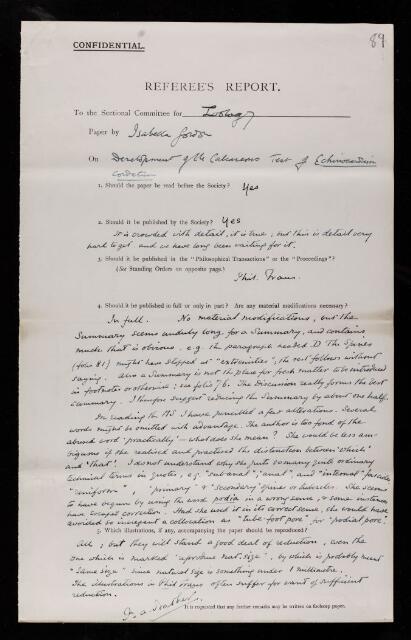 CONFIDENTIAL.
89
REFEREE'S REPORT.
To the Sectional Committee for Zoology
Paper by Isabella Gordon
On Development of the Calcareous Test of Echinocardium
cordatum
1. Should the paper be read before the Society? Yes
2. Should it be published by the Society? Yes
It is crowded with detail, it is true; but this is detail very
hard to get and we have long been waiting for it.
3. Should it be published in the "Philosophical Transactions" or the "Proceedings"?
(See Standing Orders on opposite page.)
Phil. Trans.
4. Should it be published in full or only in part? Are any material modifications necessary?
In full. No material modifications, but the
Summary seems unduly long for a Summary, and contains
much that is obvious. e.g. the paragraph headed D The Spines
(folio 81) might have stopped at "extremities", the rest follows without
saying. Also a Summary is not the place for fresh matter to be introduced
in footnotes or otherwise: see folio 76. The Discussion really forms the best
summary. I therefore suggest reducing the Summary by about one half.
In reading the MS I have pencilled a few alterations. Several
words might be omitted with advantage. The author is too fond of the
absurd word 'practically' - what does she mean? She would be less am-
biguous if she realised and practised the distinction between 'which'
and 'that'. I do not understand why she puts so many quite ordinary
technical terms in quotes, e.g. "anal" and "internal" fasciole,
"uniform", "primary" & "secondary" spines or tubercles. She seems
to have begun by using the word podia in a wrong sense, & some instances
have escaped correction. Had she used it in its correct sense, she would have
avoided so inelegant a collocation as "tube foot pore" for "podial pore".
5. Which illustrations, if any, accompanying the paper should be reproduced?
All; but they will stand a good deal of reduction, even the
one which is marked "approx nat. size", by which is probably meant
"same size" since natural size is something under 1 millimetre.
The illustrations in Phil Trans often suffer for want of sufficient
reduction.
F. A. Bather
It is requested that any further remarks may be written on foolscap paper.